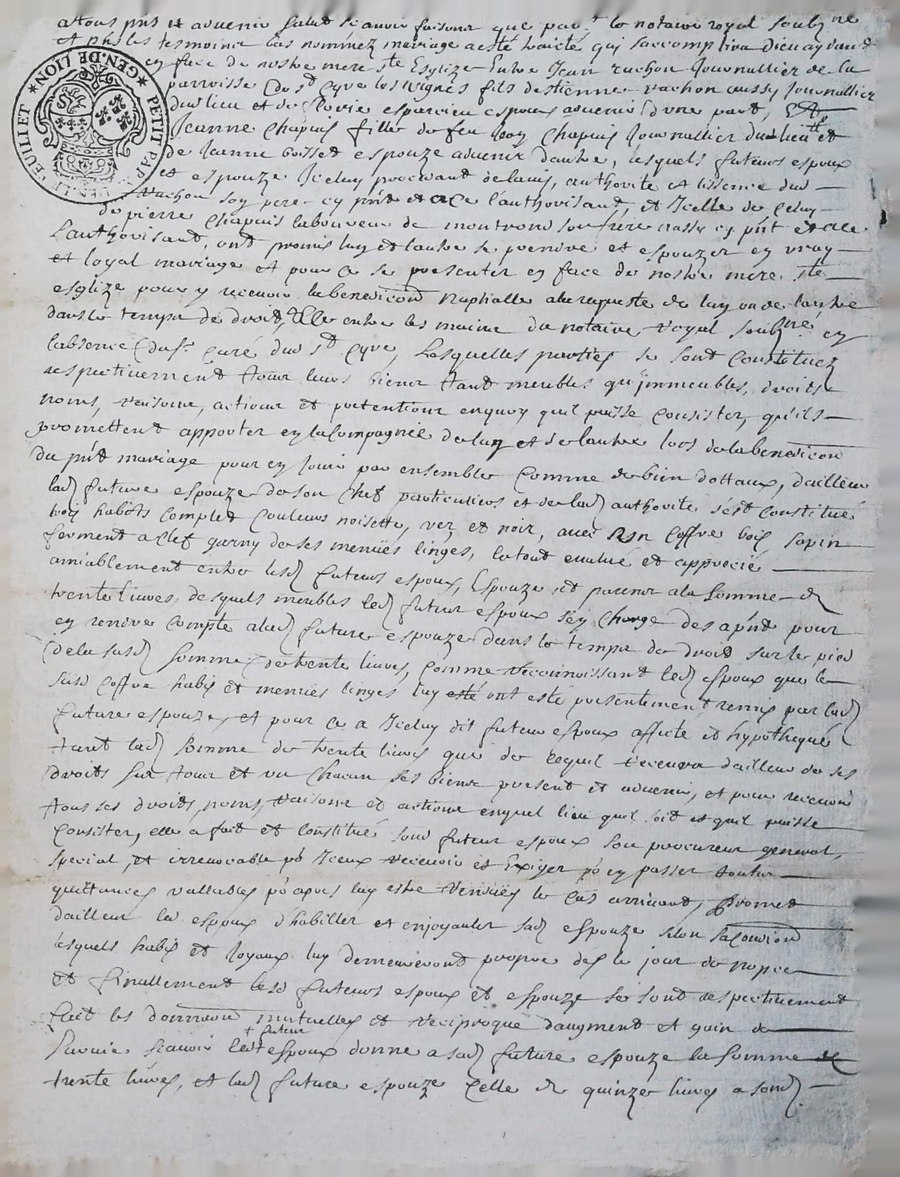 PETIT PAP. GEN. DE LION
Atous pnts et advenir salut scavoir faisons que par. le notaire royal soubzne
et pnts les tesmoins bas nommez mariage a esté traicté qui saccomplira dieu aydant
en face de nostre mere ste Esglize Entre Jean vachon Journallier de la
parroisse de st Cyre les vignes fils destienne vachon aussy Journallier
dudt lieu et de espoux advenir dune part, Et
Jeanne Chapuis fille de feu Chapuis Journallier dudt lieu et
de Jeanne espouze advenir dautre, lesquels futurs espoux
et espouze Jceluy procedant de ladvis, authorité et lissence dud
vachon son pere cy pnt et a ce lauthorisant, et Jcelle de celuy
de pierre Chapuis laboureur de montrond son frere aussy cy pnt et a ce
Lauthorisant, ont promis luy et lautre se prendre et espouzer en vray
et loyal mariage et pour ce se presenter en face de nostre mere ste
esglize pour y recevoir la benediction Nuptialle a la requeste de lun ou de lautre
dans le temps de droit, entre les mains du notaire royal soubzné en
labsence du sr curé dud st Cyre, Lesquelles parties se sont Constituez
respectivement tous leurs biens tant meubles qu'immeubles, droits
noms, raisons, actions et pretentions enquoy quil puisse Consister, qu'ils
promettent apporter en la Compagnie de lun et de lautre lors de la benediction
du pnt mariage pour en Jouir par ensembles Comme de bien dottaux, dailleurs
lad future espouze de son chef particuliers et de lad authorité s'est Constitué
trois habits complet couleurs noisette, ver, et noir, avec un Coffre bois sapin
ferment a clef garny de ses menües linges, le tout evalué et apprecié
amiablement entre lesd futurs espoux, Espouze et parens a la somme de
trente livres, desquels meubles led futur espoux sen charge des apnt pour
en rendre Compte a lad future espouze dans le temps de droit sur le pied
de la susd somme de trente livres, Comme reconnoissant led espoux que le
susd coffre habis et menües linges luy ont esté presentement remis par lad
future espouze, et pour ce a Jceluy dit futur espoux affecté et hypothequé
tant lad somme de trente livres que de lequil recevra dailleurs de ses
droits sur tous et un chacun ses biens present et advenir, et pour recevoir
tous ses droits, noms, raisons et actions en quel lieu quil soit et quil puisse
Consister, elle a fait et constitué sond futur espoux son procureur general,
special, et irrevocable pr Jceux recevoir et Exiger pr en passer toutes
quittances vallables pr apres luy estre rendües le cas arrivant, promet
dailleur led espoux dhabiller et enjoyauler sad espouze selon sa condition
lesquels habis et Joyaux luy demeureront propre des le jour de nopce
et finallement lesd futurs espoux et espouze se sont respectivement
fait les donnation mutuelles et reciproque daugment et gain de
survie scavoir led + futur espoux donne a sad future espouze la somme de
trente livres, et lad future espouze celle de quinze livres a sond